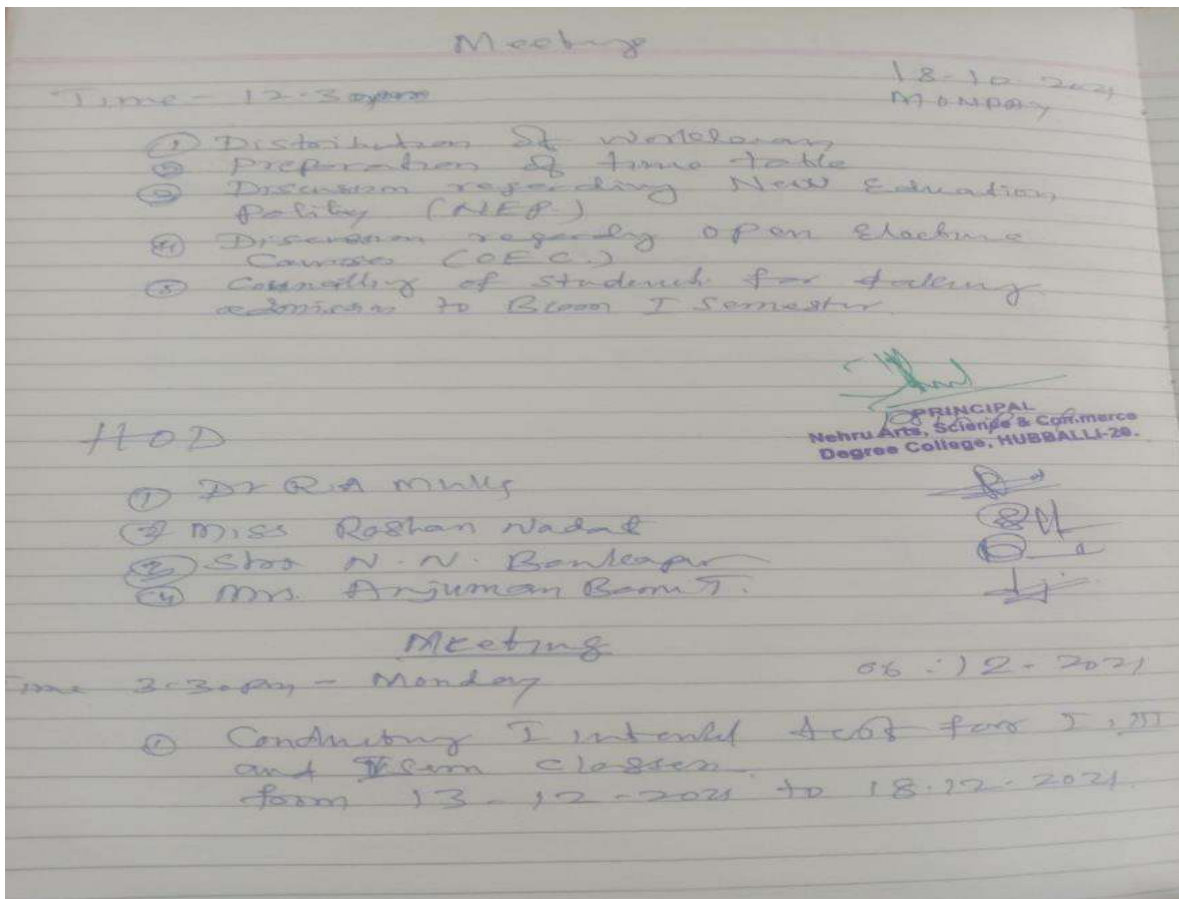 Meeting
18-10-2021
Time - 12-30pm
MONDAY
① Distribution of workload
② Preparation of time table
③ Discussion regarding New Education
Policy (NEP.)
④ Discussion regarding open Elective
Courses (OEC.)
⑤ Counselling of students for taking
admission to Bcom I Semester
PRINCIPAL
Nehru Arts, Science & Commerce
Degree College, HUBBALLI-20.
HOD
① Dr R.A
② Miss Roshan Nadaf
③ N. N. Bankapur
④ Mrs. Anjuman Banu T.
Meeting
06-12-2021
Time 3-30pm - Monday
① Conducting I internal test for I, III
and Sem classes
from 13-12-2021 to 18-12-2021